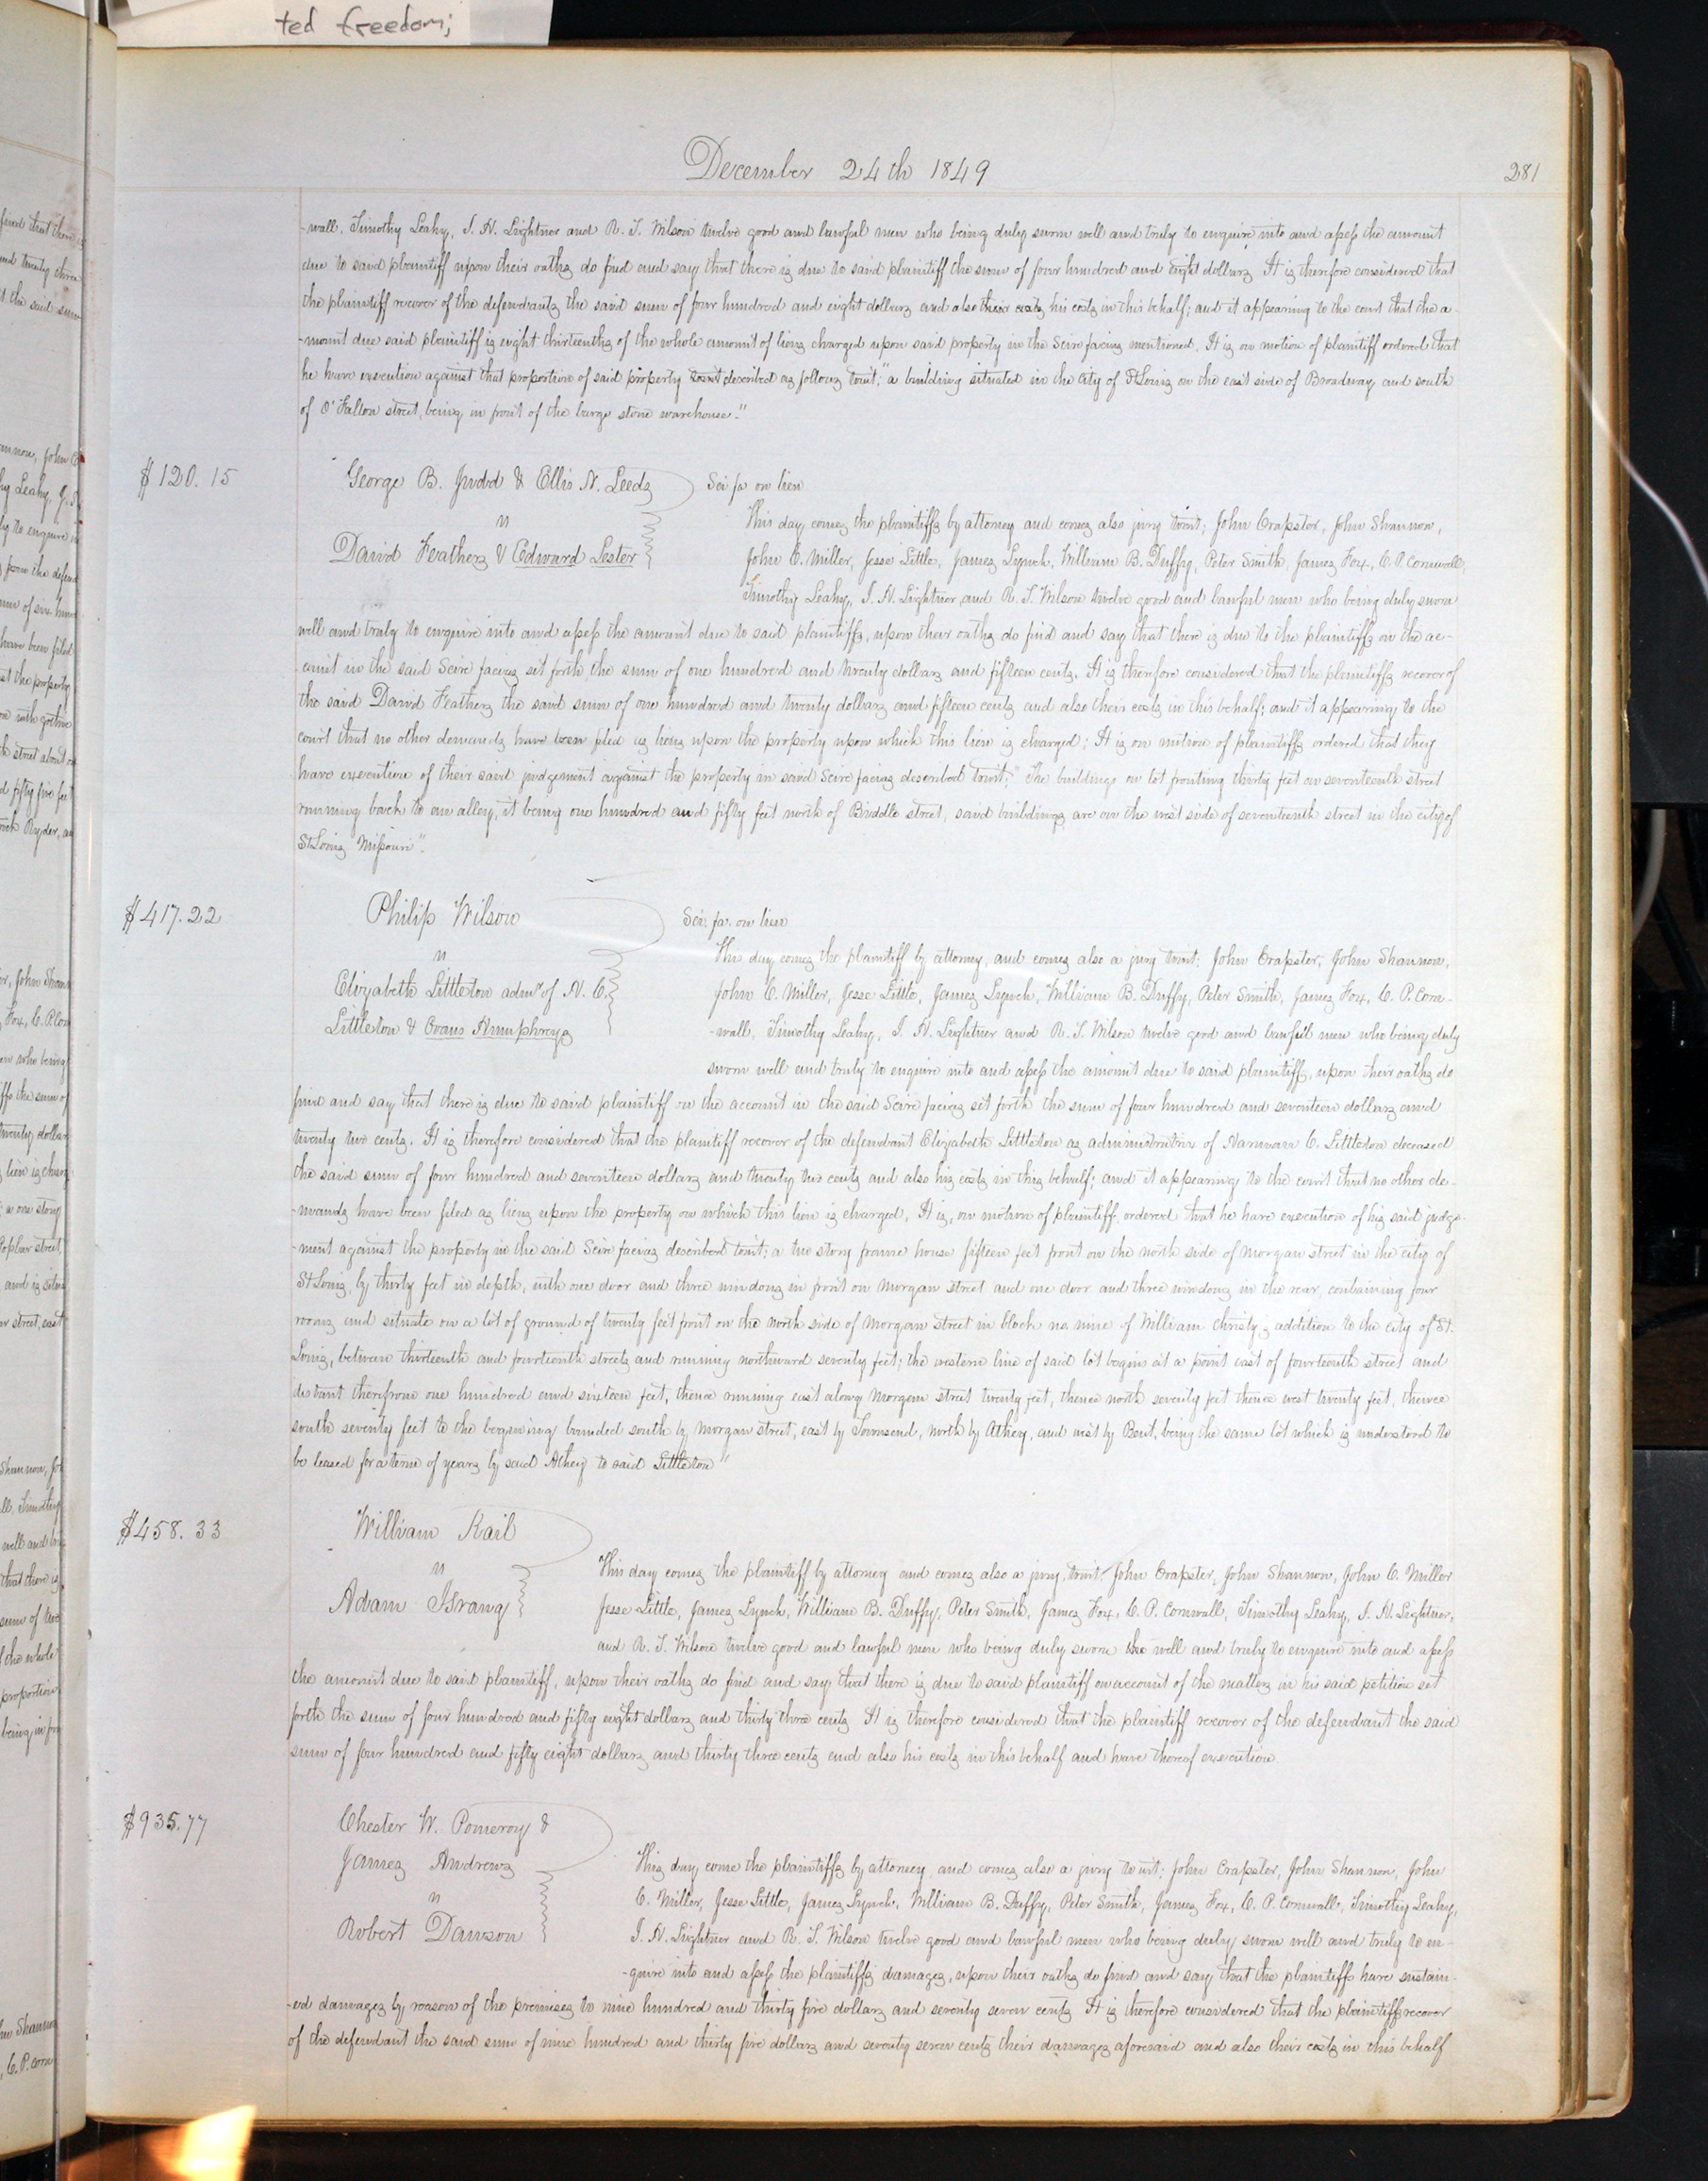 ted freedom;
December 24th 1849
281
-wall, Timothy Leahy, I. H. Lightner and R. T. Wilson twelve good and lawful men who being duly sworn well and truly to enquire into and assess the amount
due to said plaintiff upon their oaths do find and say that there is due to said plaintiff the sum of four hundred and eight dollars It is therefore considered that
the plaintiff recover of the defendants the said sum of four hundred and eight dollars and also their costs his costs in this behalf; and it appearing to the court that the a-
-mount due said plaintiff is eight thirteenths of the whole amount of liens charged upon said property in the Scire facias mentioned, It is on motion of plaintiff ordered that
he have execution against that proportion of said property described as follows towit; "a building situated in the City of St Louis on the east side of Broadway and south
of O'Fallon street, being in front of the large stone warehouse."
$120.15
George B. Judd & Ellis N. Leeds
Sci fa on lien
vs
This day comes the plaintiffs by attorney and comes also jury towit; John Crapster, John Shannon,
David Feathers & Edward Lester
John C. Miller, Jesse Little, James Lynch, William B. Duffy, Peter Smith, James Fox, C. P. Cornwall,
Timothy Leahy, I. H. Lightner, and R. T. Wilson twelve good and lawful men who being duly sworn
well and truly to enquire into and assess the amount due to said plaintiffs, upon their oaths do find and say that there is due to the plaintiffs on the ac-
-count in the said Scire facias set forth the sum of one hundred and twenty dollars and fifteen cents. It is therefore considered that the plaintiffs recover of
the said David Feathers the said sum of one hundred and twenty dollars and fifteen cents and also their costs in this behalf; and it appearing to the
court that no other demands have been filed as liens upon the property upon which this lien is charged; It is on motion of plaintiffs ordered that they
have execution of their said judgement against the property in said Scire facias described towit; "The buildings on lot fronting thirty feet on seventeenth street
running back to an alley, it being one hundred and fifty feet north of Biddle street, said buildings are on the west side of seventeenth street in the city of
St Louis Missouri".
$417.22
Philip Wilson
Sci. fa. on lien
vs
This day comes the plaintiff by attorney, and comes also a jury towit: John Crapster, John Shannon,
Elizabeth Littleton admx of N. C.
John C. Miller, Jesse Little, James Lynch, William B. Duffy, Peter Smith, James Fox, C. P. Corn-
Littleton & Evans Humphreys
-wall, Timothy Leahy, I. H. Lightner and R. T. Wilson twelve good and lawful men who being duly
sworn well and truly to enquire into and assess the amount due to said plaintiff, upon their oaths do
find and say that there is due to said plaintiff on the account in the said Scire facias set forth the sum of four hundred and seventeen dollars and
twenty two cents. It is therefore considered that the plaintiff recover of the defendant Elizabeth Littleton as administratrix of C. Littleton deceased
the said sum of four hundred and seventeen dollars and twenty two cents and also his costs in this behalf; and it appearing to the court that no other de-
-mands have been filed as liens upon the property on which this lien is charged, It is, on motion of plaintiff, ordered that he have execution of his said judge-
-ment against the property in the said Scire facias described towit: a two story frame house fifteen feet front on the north side of Morgan street in the city of
St Louis, by thirty feet in depth, with one door and three windows in front on Morgan street and one door and three windows in the rear, containing four
rooms and situate on a lot of ground of twenty feet front on the north side of Morgan street in block no. nine of William Christy,s addition to the city of St.
Louis, between thirteenth and fourteenth streets and running northward seventy feet; the western line of said lot begins at a point east of fourteenth street and
distant therefrom one hundred and sixteen feet, thence running east along Morgan street twenty feet, thence north seventy feet thence west twenty feet, thence
south seventy feet to the beginning bounded south by Morgan street, east by Townsend, north by Athey, and west by Bent, being the same lot which is understood to
be leased for a term of years by said Athey to said Littleton"
$458.33
William Rail
vs
This day comes the plaintiff by attorney and comes also a jury, towit: John Crapster, John Shannon, John C. Miller
Adam Israng
Jesse Little, James Lynch, William B. Duffy, Peter Smith, James Fox, C. P. Cornwall, Timothy Leahy, I. H. Lightner,
and R. T. Wilson twelve good and lawful men who being duly sworn the well and truly to enquire into and assess
the amount due to said plaintiff, upon their oaths do find and say that there is due to said plaintiff on account of the matters in his said petition set
forth the sum of four hundred and fifty eight dollars and thirty three cents It is therefore considered that the plaintiff recover of the defendant the said
sum of four hundred and fifty eight dollars and thirty three cents and also his costs in this behalf and have thereof execution
$935.77
Chester W. Pomeroy &
James Andrews
This day come the plaintiffs by attorney and comes also a jury to wit: John Crapster, John Shannon, John
vs
C. Miller, Jesse Little, James Lynch, William B. Duffy, Peter Smith, James Fox, C. P. Cornwall, Timothy Leahy,
Robert Dawson
I. H. Lightner and R. T. Wilson twelve good and lawful men who being duly sworn well and truly to en-
-quire into and assess the plaintiffs damages, upon their oaths do find and say that the plaintiffs have sustain-
-ed damages by reason of the premises to nine hundred and thirty five dollars and seventy seven cents It is therefore considered that the plaintiffs recover
of the defendant the said sum of nine hundred and thirty five dollars and seventy seven cents their damages aforesaid and also their costs in this behalf